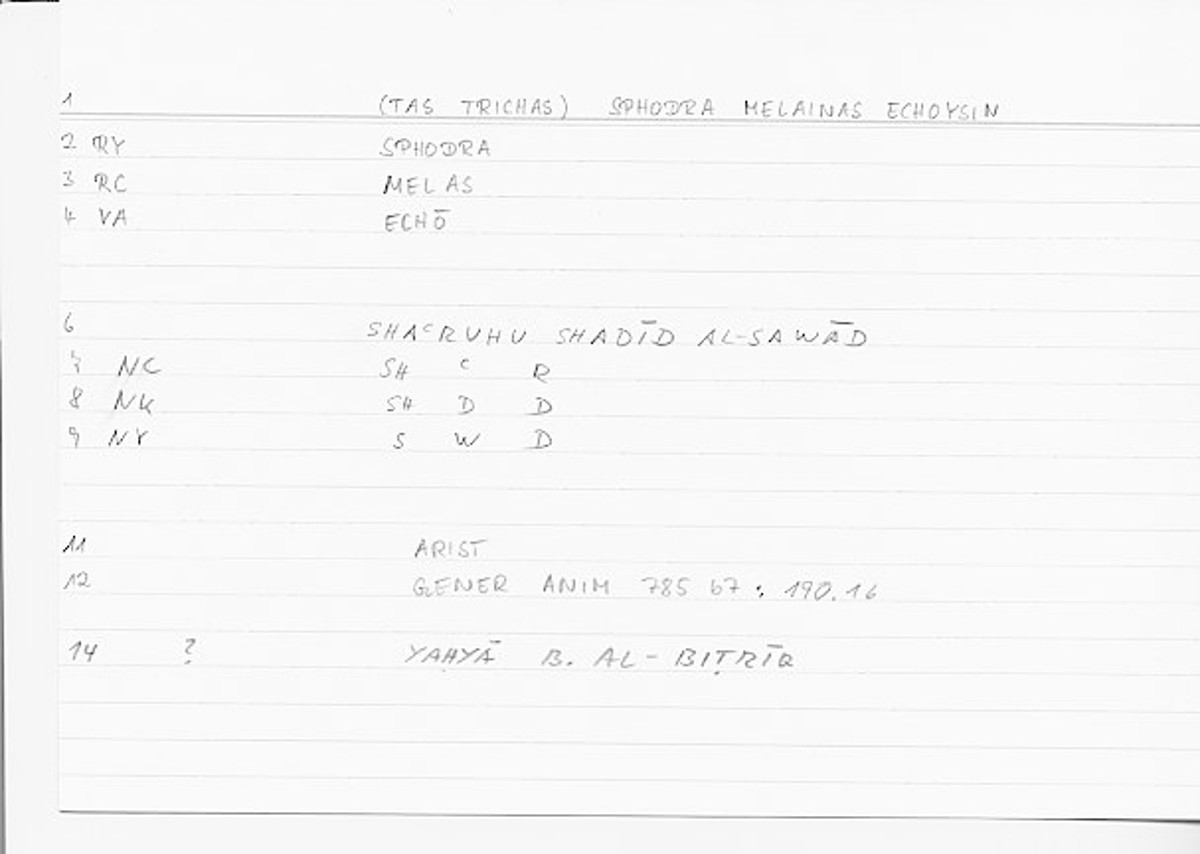 1 (TAS TRICHAS) SPHODRA MELAINAS ECHOYSIN
2 RY SPHODRA
3 RC MELAS
4 VA ECHŌ
6 SHAᶜRUHU SHADĪD AL-SAWĀD
7 NC SH ᶜ R
8 NK SH D D
9 NY S W D
11 ARIST
12 GENER ANIM 785 b7 : 190.16
14 ? YAḤYĀ B. AL-BIṬRĪQ